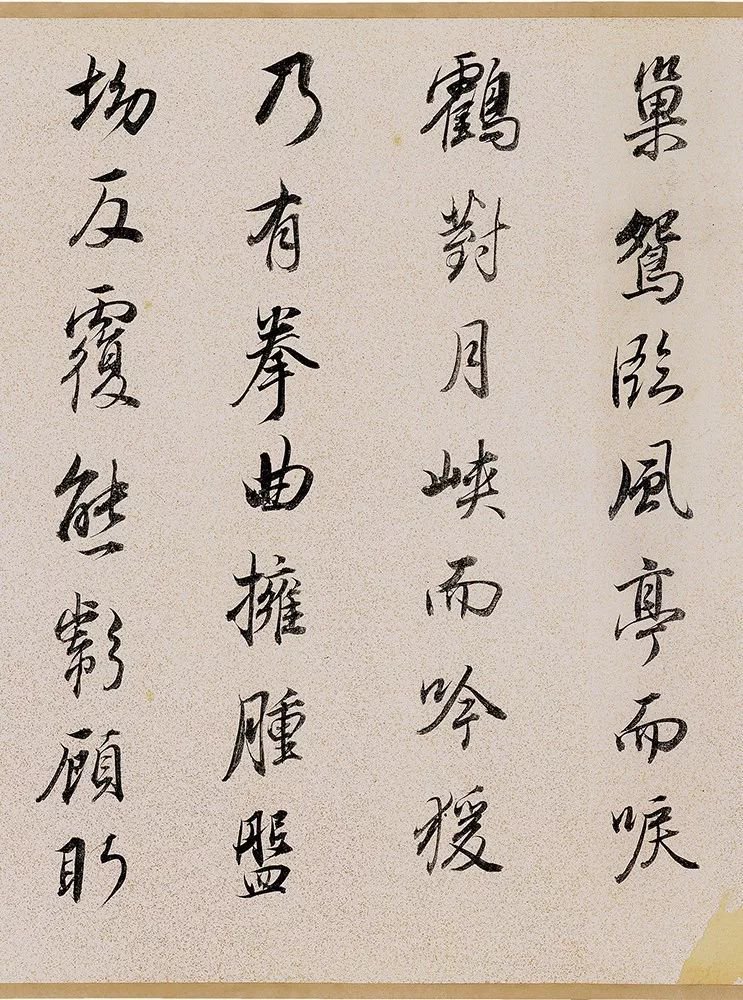 巢鴛臨風亭而唳
鶴對月峽而吟猨
乃有拳曲擁腫盤
坳反覆熊彪顧盼